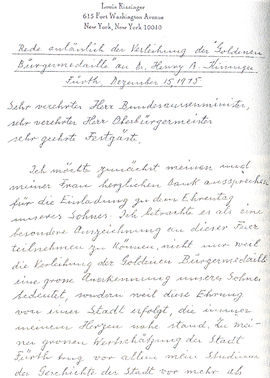 Louis Kissinger
615 Fort Washington Avenue
New York, New York 10040
Rede anlässlich der Verleihung der "Goldenen
Bürgermedaille" an D. Henry A. Kissinger
Fürth, Dezember 15, 1975
Sehr verehrter Herr Bundesaussenminister,
sehr verehrter Herr Oberbürgermeister
sehr geehrte Festgäste.
Ich möchte zunächst meinen und
meiner Frau herzlichen Dank aussprechen
für die Einladung zu dem Ehrentag
unseres Sohnes. Ich betrachte es als eine
besondere Auszeichnung an dieser Feier
teilnehmen zu können, nicht nur weil
die Verleihung der Goldenen Bürgermedaille
eine grosse Anerkennung unseres Sohnes
bedeutet, sondern weil diese Ehrung
von einer Stadt erfolgt, die immer
meinem Herzen nahe stand. Zu mei-
ner grossen Wertschätzung der Stadt
Fürth trug vor allem mein Studium
der Geschichte der Stadt vor mehr als